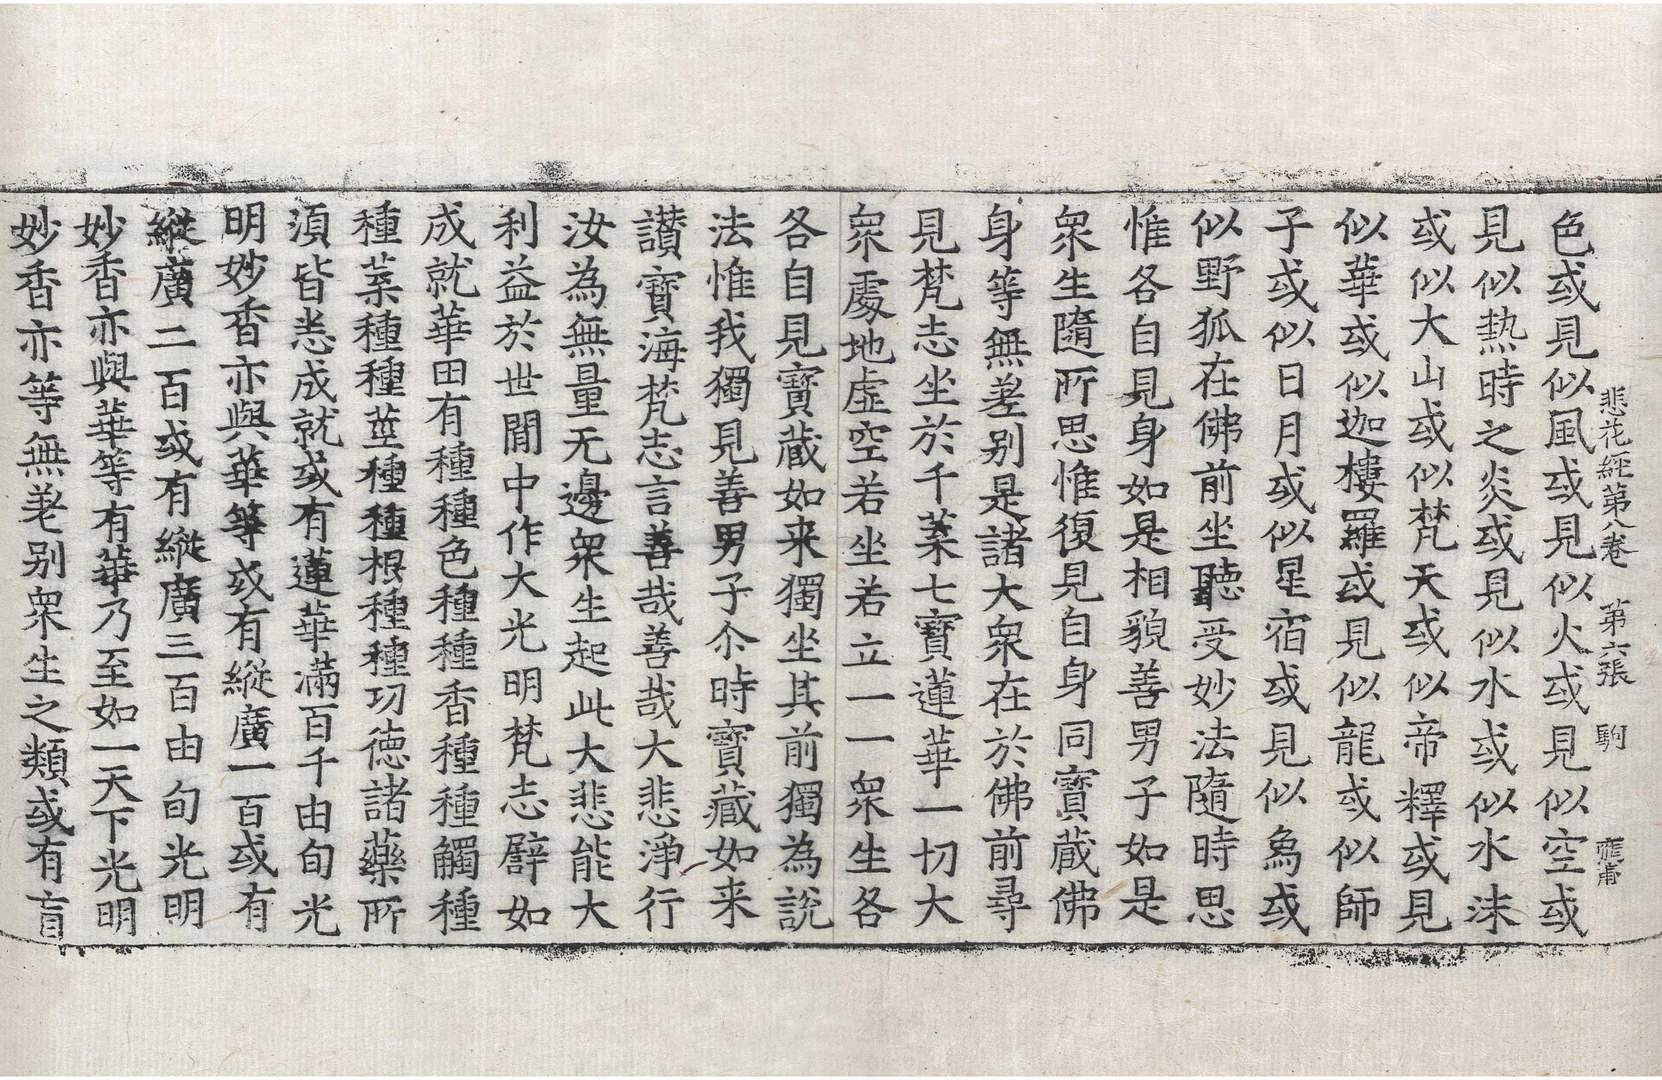 悲花經第八卷　第六張　駒
色或見似風或見似火或見似空或
見似熱時之炎或見似水或似水沫
或似大山或似梵天或似帝釋或見
似華或似迦樓羅或見似龍或似師
子或似日月或似星宿或見似鳥或
似野狐在佛前坐聽受妙法隨時思
惟各自見身如是相貌善男子如是
衆生隨所思惟復見自身同寶藏佛
身等無差別是諸大衆在於佛前尋
見梵志坐於千葉七寶蓮華一切大
衆處地虛空若坐若立一一衆生各
各自見寶藏如来獨坐其前獨為說
法惟我獨見善男子尒時寶藏如来
讃寶海梵志言善哉善哉大悲淨行
汝為無量无邊衆生起此大悲能大
利益於世閒中作大光明梵志譬如
成就華田有種種色種種香種種觸種
種葉種種莖種種根種種功德諸藥所
湏皆悉成就或有蓮華滿百千由旬光
明妙香亦與華等或有縱廣一百或有
縱廣二百或有縱廣三百由旬光明
妙香亦與華等有華乃至如一天下光明
妙香亦等無差別衆生之類或有盲